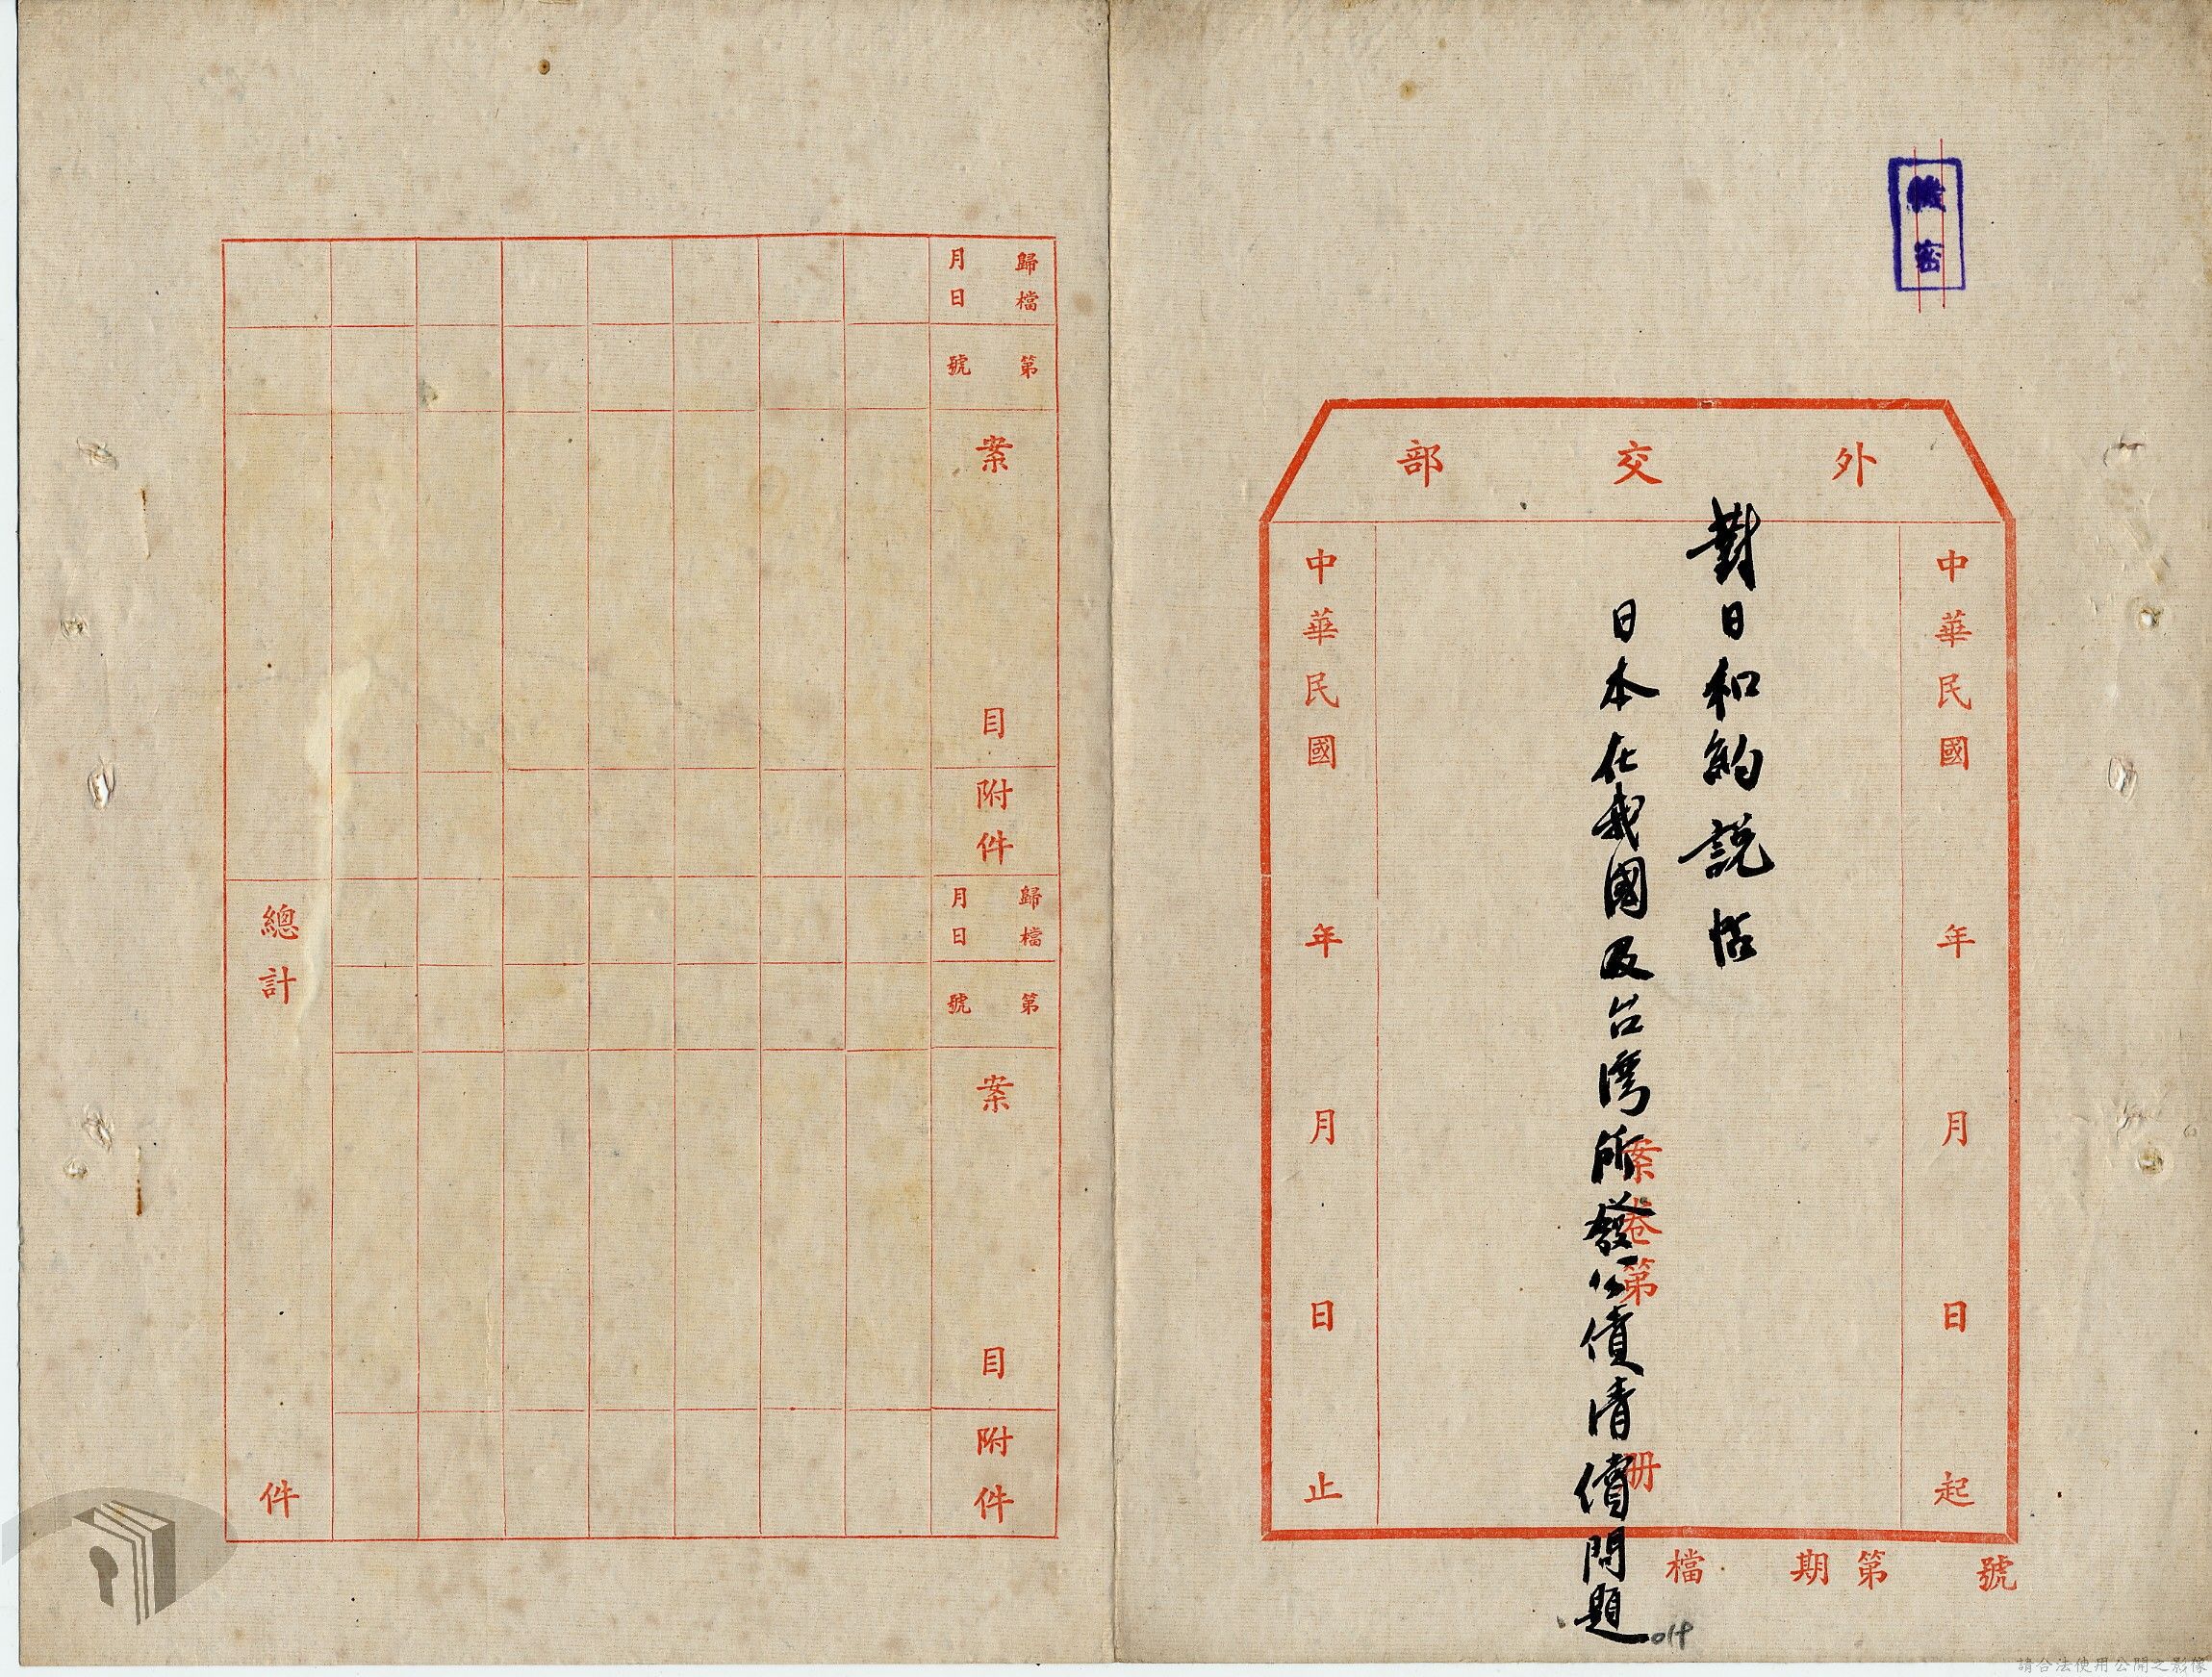 機密
外交部
中華民國 年 月 日 起
對日和約說帖
日本在我國及台灣所發公債清償問題
案卷第 册
中華民國 年 月 日 止
號 第 期 檔
014
歸檔 月日
第 號
案 目
附件
歸檔 月日
第 號
案 目
附件
總計 件
請合法使用公開之影像